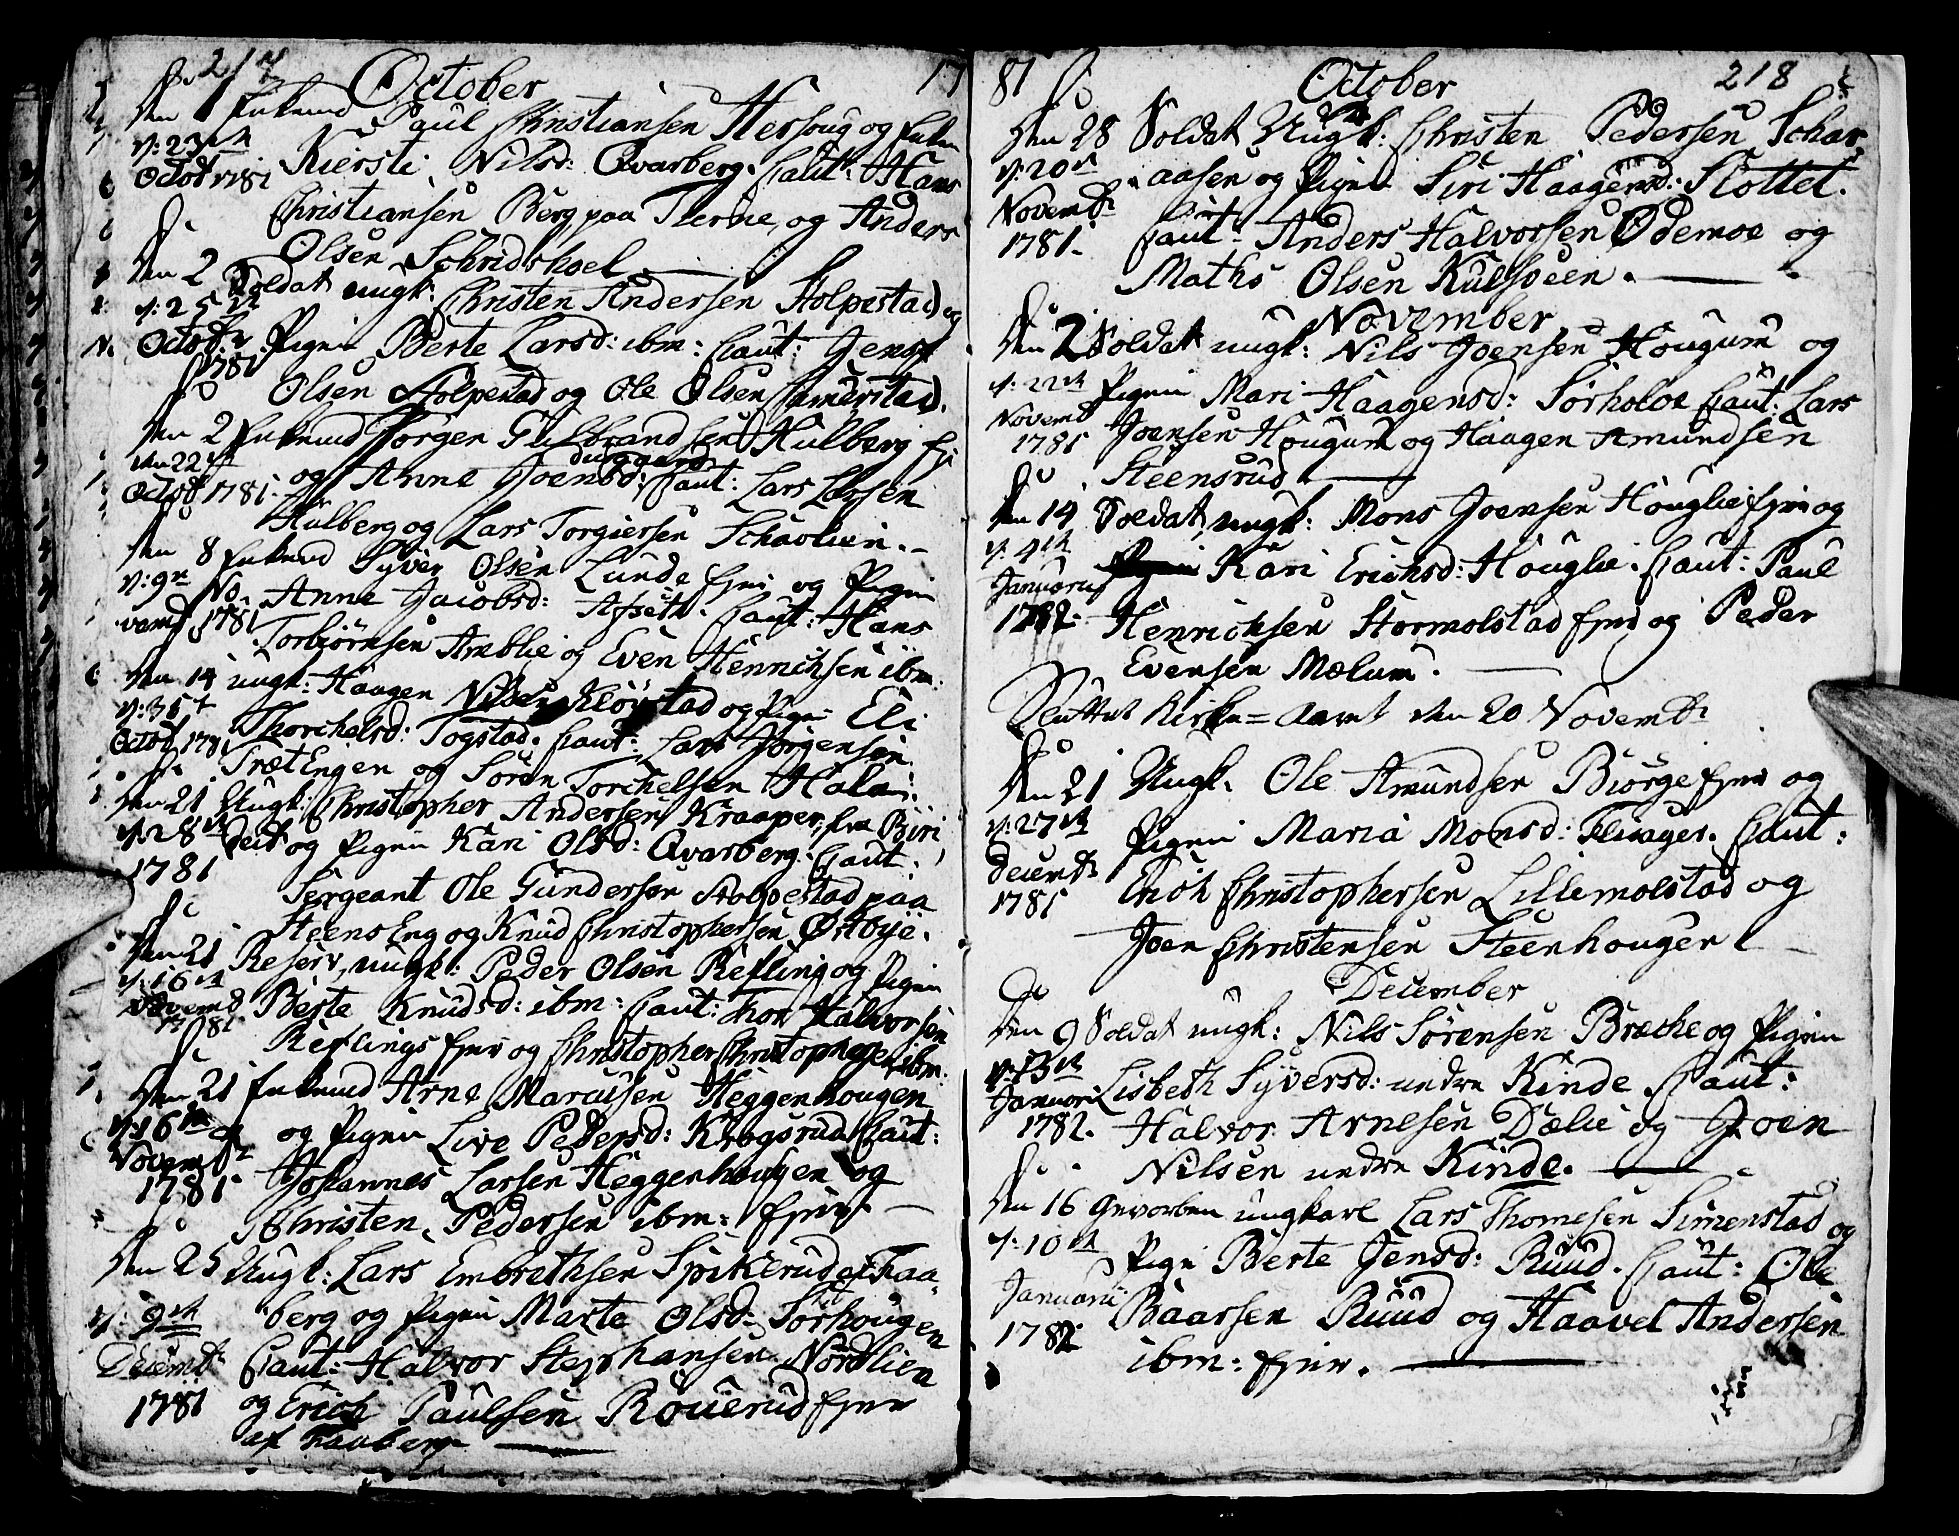 217 October 17
Den 1 Enkemd Paul Christiansen Hersoug og Enken
v: 23de Octob 1781 Kiersti Nilsd: Qvarberg. Caut: Hans
Christiansen Berg paa Tierne, og Anders
Olsen Schridshoel
Den 2 Soldat ungk: Christen Andersen Stolpestad og
v: 25
Octobr 1781 Pigen Berte Larsd: ibm: Caut: Jens
Olsen Stolpestad og Ole Olsen Smerstad.
Den 2 Enkemd Jørgen Gulbrandsen Hulberg
den 22 Octob 1781. og Anne Joensd: Caut: Lars Larsen
Hulberg og Lars Torgiersen Schaolien.
Den 8 Enkemd Syver Olsen Lunde og Pigen
v: 9 Novemb 1781 Anne Jacobsd: Afseth. Caut: Hans
Torbiørnsen Amblie og Even Henrichsen ibm:
Den 14 ungk: Haagen Nilsen Kløvstad og Pigen Eli
v: 31
Octob 1781 Thorchelsd: Togstad. Caut: Lars Jørgensen
TrætEngen og Søren Torchelsen Hola:
Den 21 Ungk: Christopher Andersen Kraaper, fra Biri
v: 28 1781 og Pigen Kari Olsd: Qvarberg. Caut:
Sergeant Ole Gundersen Stolpestad paa
SteensEng og Knud Christophersen Østbye.
Den 21 Reserv, ungk: Peder Olsen Refling og Pigen
v: 16 Novemb 1781 Berte Knudsd: ibm: Caut: Thor Halvorsen
Reflings og Christopher Christophersen ibm:
Den 21 Enkemd Arne Marcusen Heggenhougen
v: 16 Novembr 1781 og Pigen Live Pedersd: Krogsrud Caut:
Johannes Larsen Heggenhougen og
Christen Pedersen ibm:
Den 25 Ungk: Lars Embrethsen Spikerud af Faa-
v: 9 Decembr 1781 berg og Pigen Marte Olsd: Sørhougen
Caut: Halvor Stephansen Nordlien
og Erich Paulsen Rouerud
af Faaberg
81 October 218
Den 28 Soldat Ungk: Christen Pedersen Schar-
v: 20 Novembr 1781. aasen og Pigen Siri Haagensd: Slottet.
Caut: Anders Halvorsen Ødemoe og
Maths Olsen Kulsveen.
November
Den 2 Soldat ungk: Nils Joensen Hougum og
v: 22
Novemb 1781 Pigen Mari Haagensd: Sørholoe Caut: Lars
Joensen Hougum og Haagen Amundsen
Steensrud
Den 14 Soldat, ungk: Mons Joensen Houglie og
v: 4
Januarii 1782. Kari Erichsd: Houglie. Caut: Paul
Henrichsen Stormolstad og Peder
Evensen Mælum.
Sluttet Kirke=Aaret den 20 Novembr
Den 21 Ungk. Ole Amundsen Biørge og
v: 27
Decembr 1781 Pigen Maria Monsd: Flinager. Caut:
Erich Christophersen Lillemolstad og
Joen Christensen Steenhougen
December
Den 9 Soldat ungk: Nils Sørensen Bræche og Pigen
v: 13
Januari 1782. Lisbeth Syversd: nedre Kinde Caut:
Halvor Arnesen Dælie og Joen
Nilsen nedre Kinde.
Den 16 Gevorben ungkarl Lars Thomesen Simenstad og
v: 10
Januarii 1782 Pige Berte Jensd: Ruud. Caut: Ole
Baarsen Ruud og Haavel Andersen
ibm: